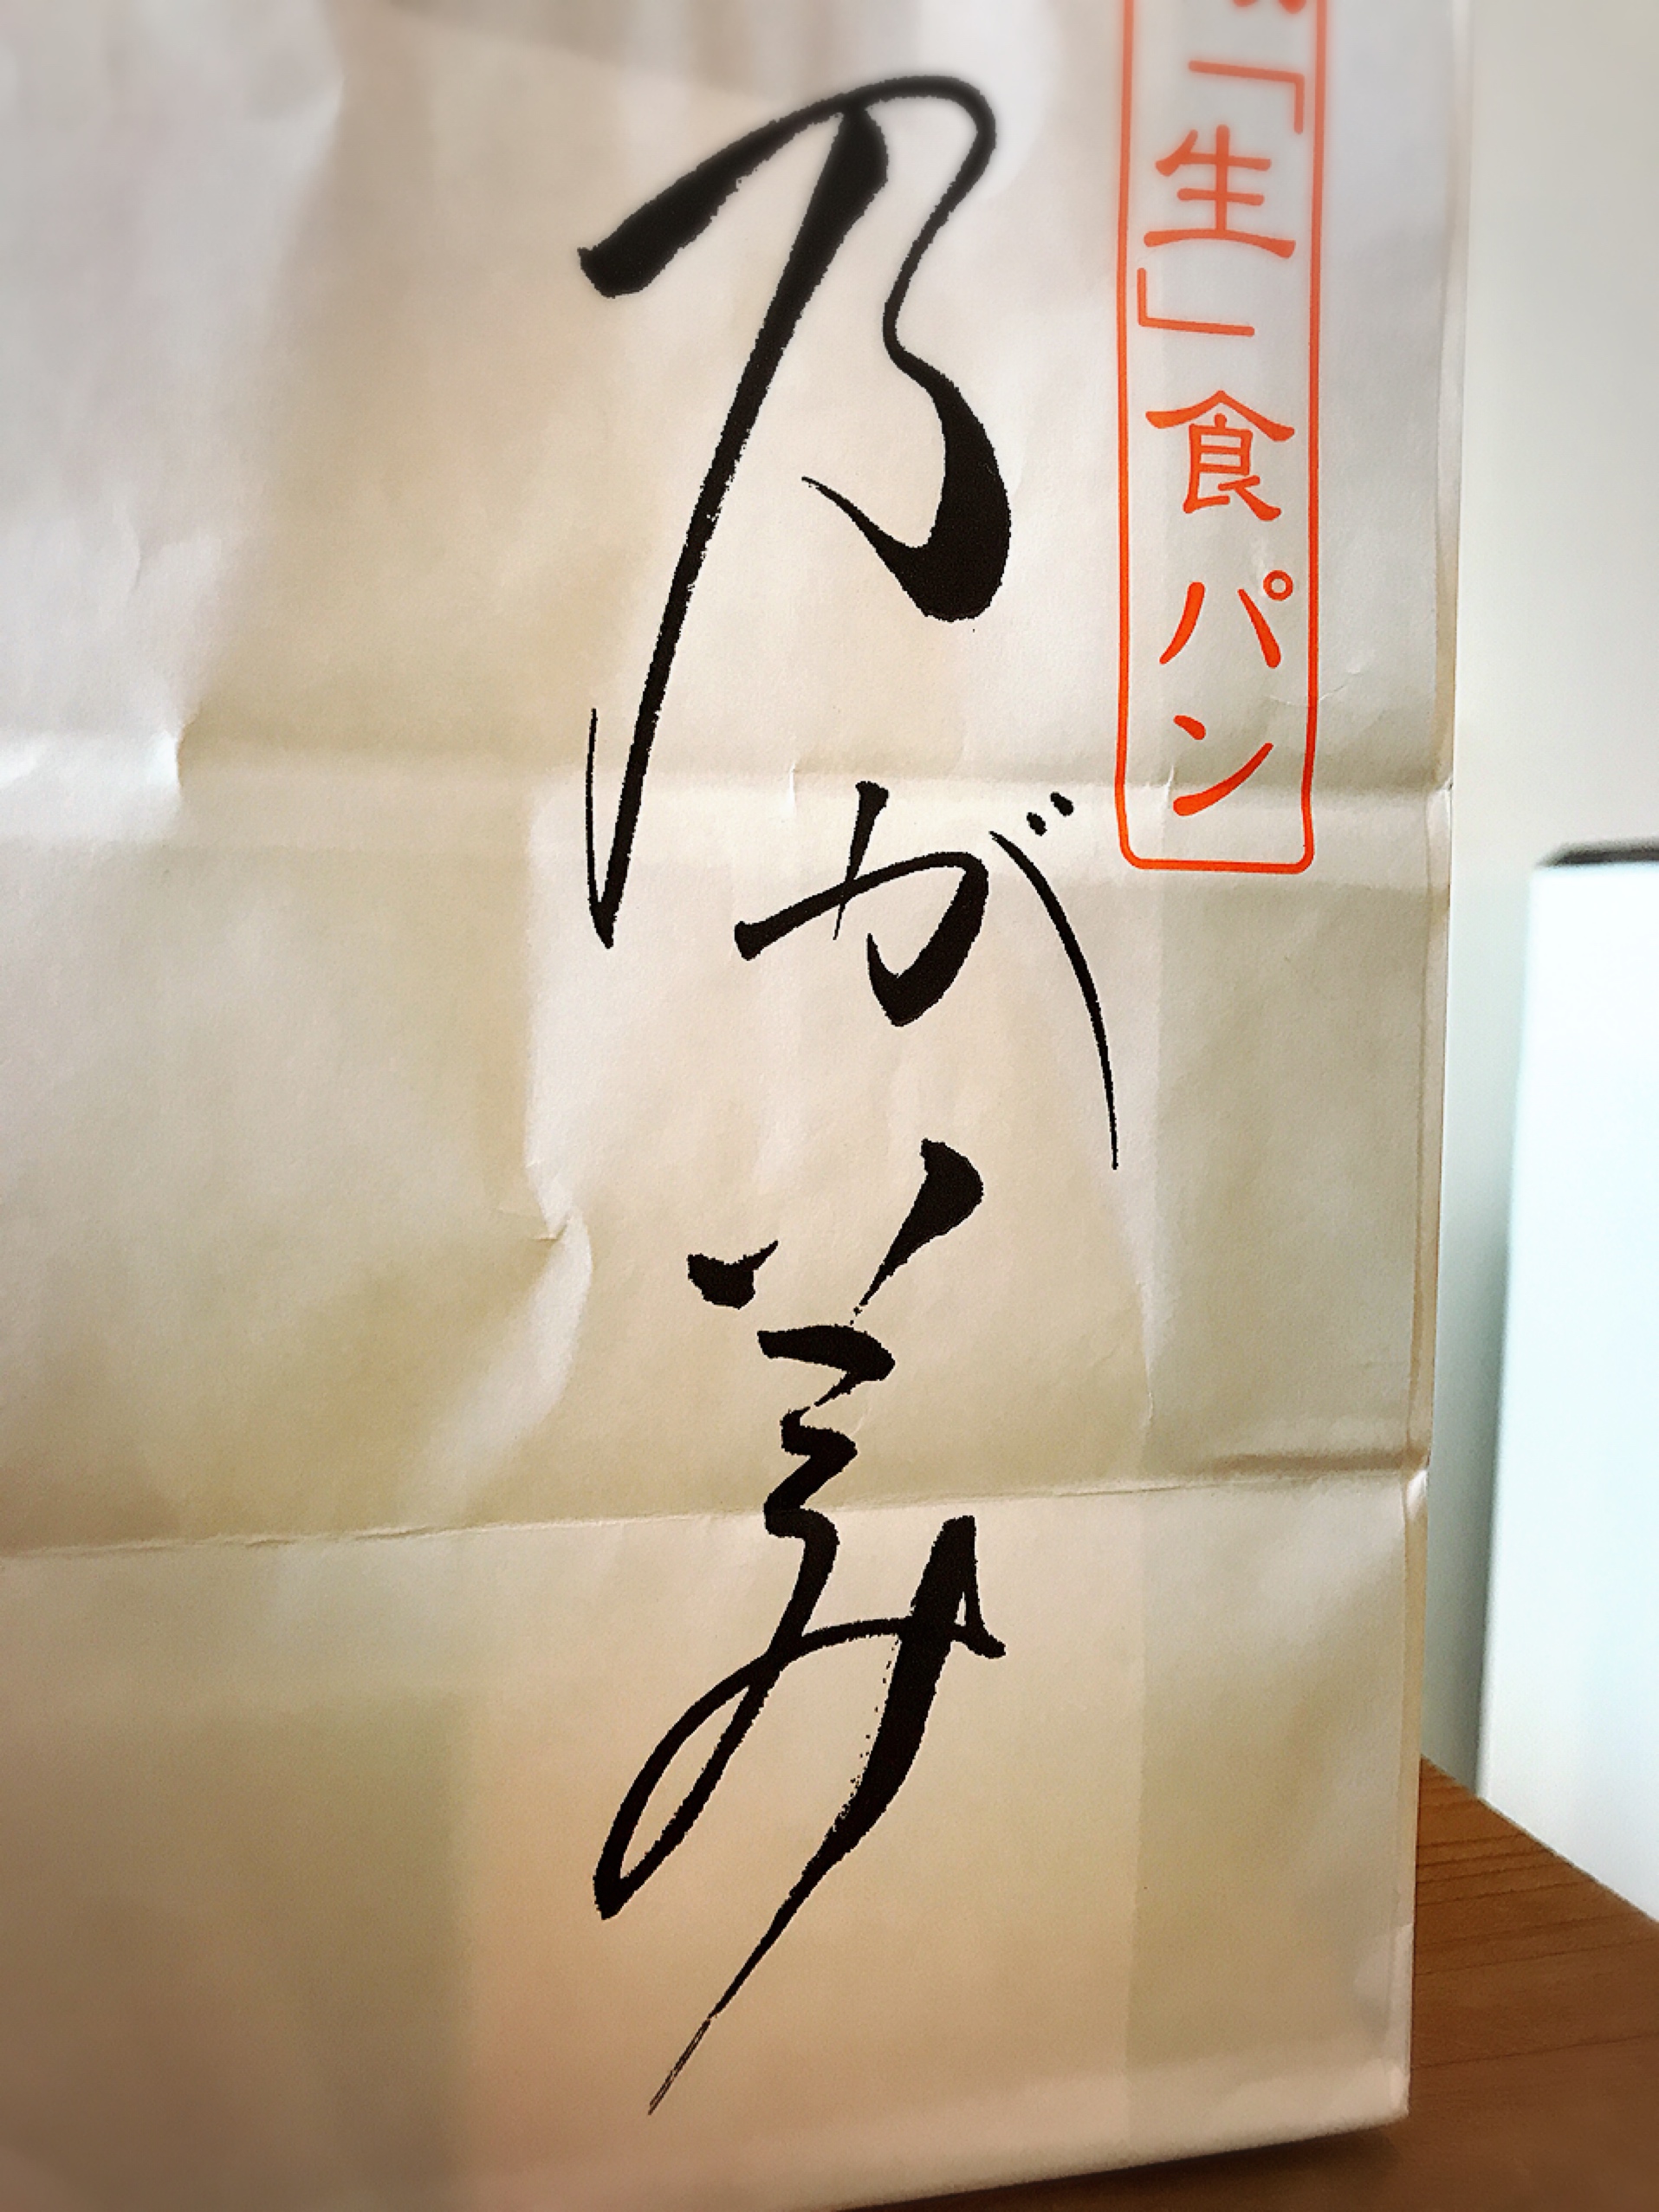 「生」食パン
乃が美